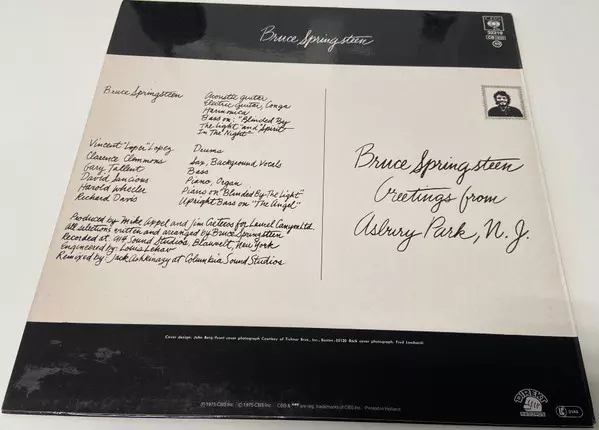 Bruce Springsteen
CBS
32210
Bruce Springsteen
Acoustic guitar
Electric guitar, Conga
Harmonica
Bass on: "Blinded By
The Light" and "Spirit
In The Night".
Vincent "Loper" Lopez Drums
Clarence Clemmons Sax, Background Vocals
Gary Tallent Bass
David Sancious Piano, Organ
Harold Wheeler Piano on "Blinded By The Light"
Richard Davis Upright Bass on "The Angel"
Produced by Mike Appel and Jim Cretecos for Laurel Canyon Ltd.
All selections written and arranged by Bruce Springsteen
Recorded at 914 Sound Studios, Blauvelt, New York
Engineered by Louis Lahav
Remixed by Jack Ashkinazy at Columbia Sound Studios
Bruce Springsteen
Greetings from
Asbury Park, N.J.
Cover design: John Berg Front cover photograph Courtesy of Tichnor Bros., Inc., Boston-02120 Back cover photograph, Fred Lombardi
℗ 1975 CBS Inc. © 1975 CBS Inc. CBS & are reg. trademarks of CBS Inc. Printed in Holland